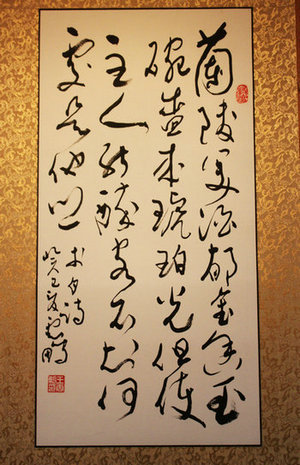 蘭陵美酒郁金香玉
碗盛来琥珀光但使
主人能醉客不知何
處是他鄉
李白詩
癸巳夏